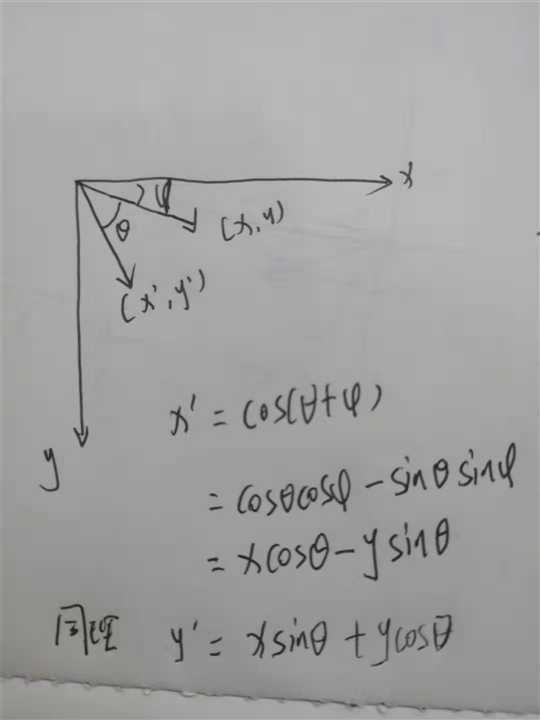 x
φ
θ
(x,y)
(x',y')
y
x' = cos(θ+φ)
= cosθcosφ - sinθsinφ
= xcosθ - ysinθ
同理 y' = xsinθ + ycosθ